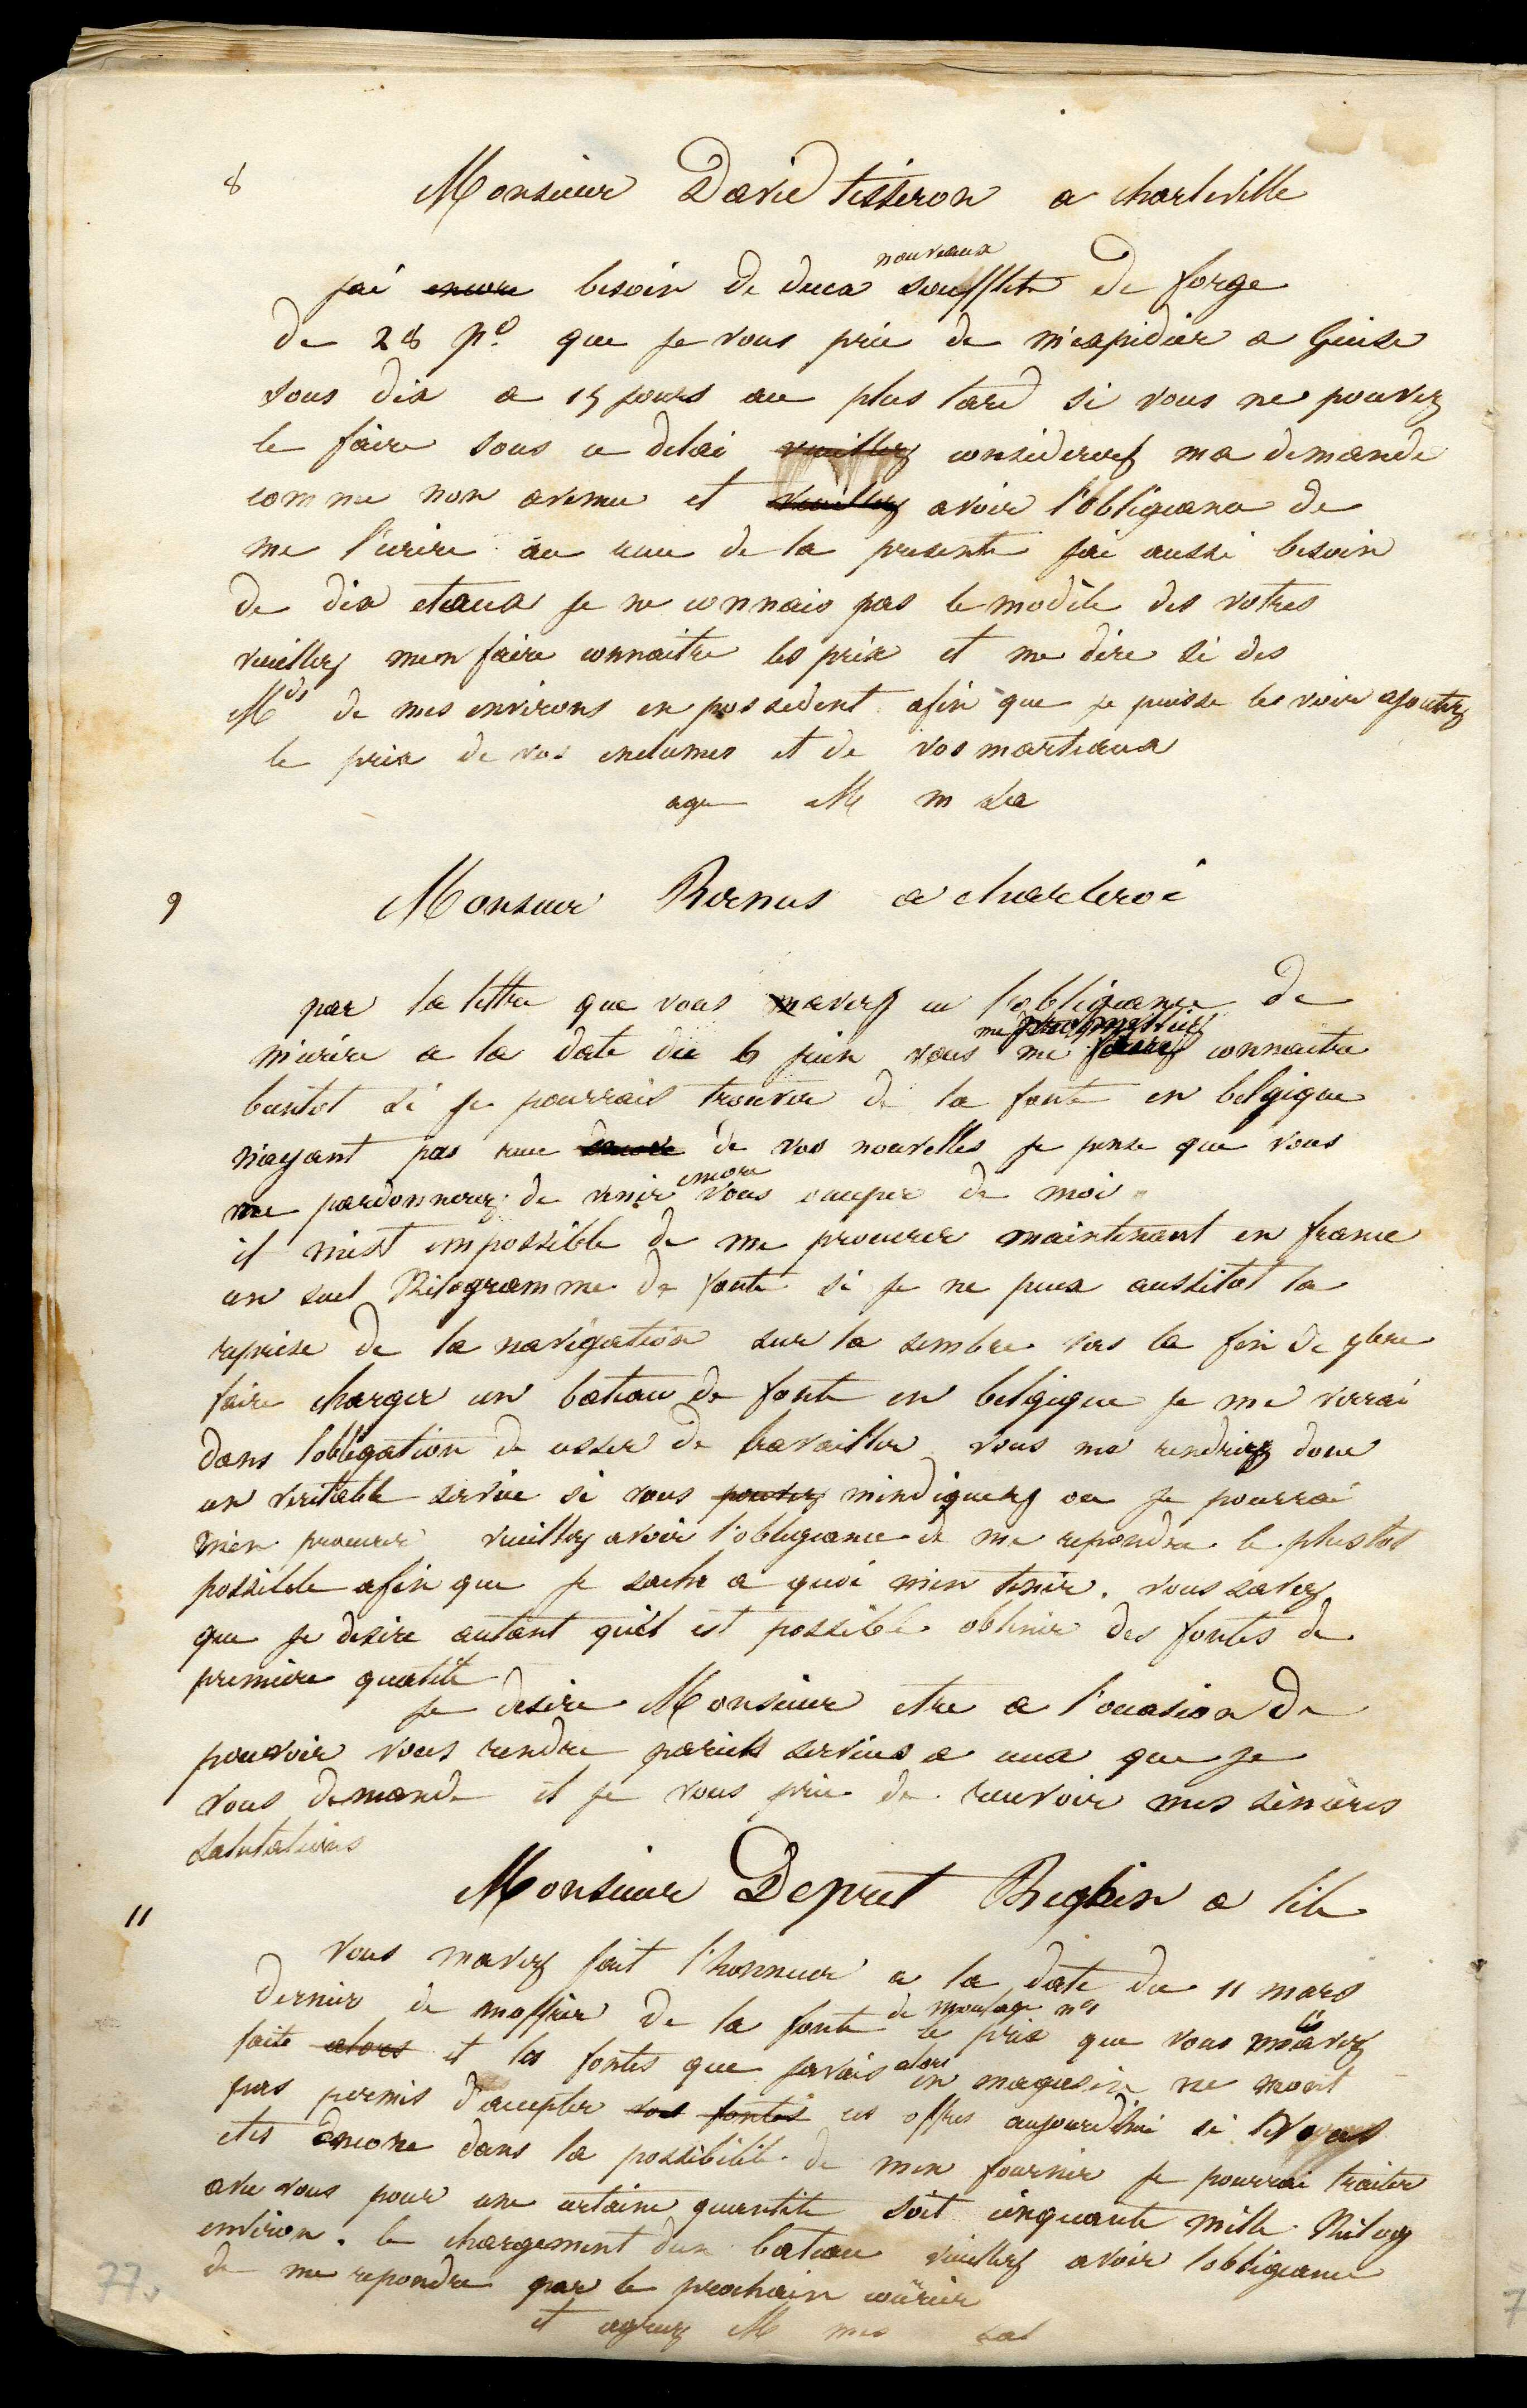 8
Monsieur David tisseron a charleville
jai encore besoin de deux nouveaux soufflets de forge
de 28 po que je vous prie de m'expidier a Guise
sous dix a 15 jours au plus tard si vous ne pouvez
le faire sous ce delai veuillez considerez ma demande
comme non avenue et veuillez avoir l'obligeance de
me l'ecrire au recu de la presente jai aussi besoin
de dix etaux je ne connais pas le modele des votres
veuillez men faire connaitre les prix et me dire si des
Mds de mes environs en possedent afin que je puisse les voir ajoutez
le prix de vos enclumes et de vos marteaux
agr M m sa
9
Monsieur Rernus a charleroi
par la lettre que vous mavez eu l'obligeance de
m'ecrire a la date du 6 juin vous me promettiez me faire connaitre
bientot si je pourrais trouver de la fonte en belgique
n'ayant pas recu encore de vos nouvelles je pense que vous
me pardonnerez de venir encore vous occuper de moi
il m'est impossible de me procurer maintenant en france
un seul Kilogramme de fonte si je ne peux aussitot la
reprise de la navigation sur la sambre vers la fin de 9bre
faire charger un bateau de fonte en belgique je me verrai
dans l'obligation de cesser de travailler vous me rendriez donc
un veritable service si vous pouvez mindiquez ou je pourrai
m'en procurer veuillez avoir l'obligeance de me repondre le plus tot
possible afin que je sache a quoi m'en tenir. vous savez
que je desire autant qu'il est possible obtenir des fontes de
premiere qualite
je desire Monsieur etre a l'occasion de
pouvoir vous rendre pareils services a ceux que je
vous demande et je vous prie de recevoir mes sinceres
salutations
11
Monsieur Depret Beghin a lile
Vous mavez fait l'honneur a la date du 11 mars
dernier de moffrir de la fonte de moulage no1 le prix que vous mavez
faite alors et les fontes que javais alors en magasin ne mont
pas permis d'accepter vos fontes ces offres aujourdhui si vous
etes encore dans la possibilite de men fournir je pourrai traiter
avec vous pour une certaine quantite soit cinquante mille Kilog
environ. le chargement d'un bateau veuillez avoir l'obligeance
de me repondre par le prochain courier
et agreez M mes sal
77.